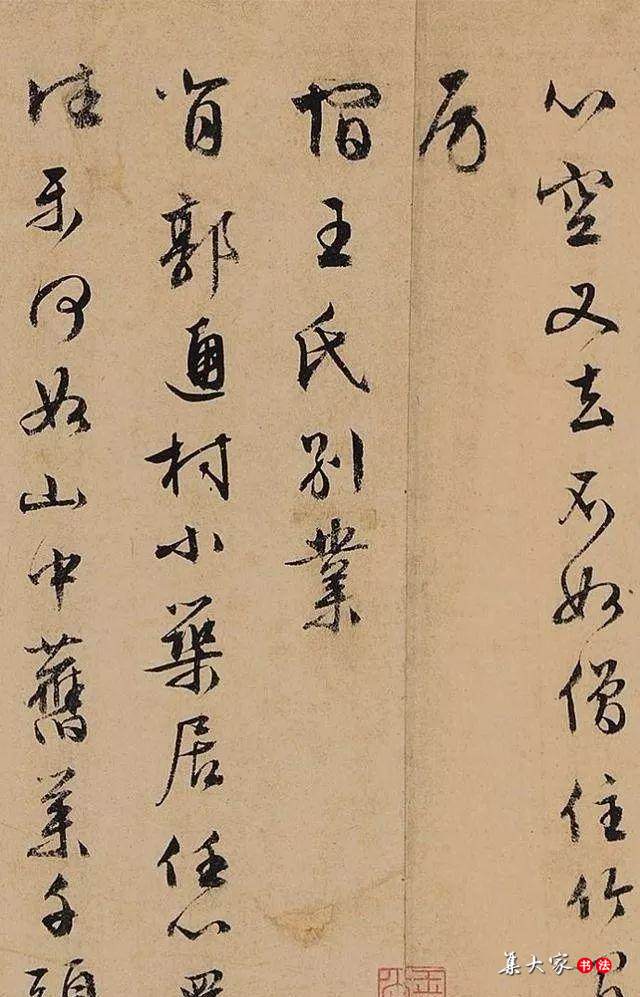 心空又去不如僧住竹
房
王氏別業
背郭通村小築居任心
何如山中舊業千頭
集大家 书法